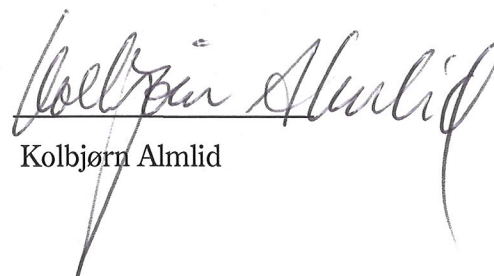 Kolbjørn Almlid
Kolbjørn Almlid